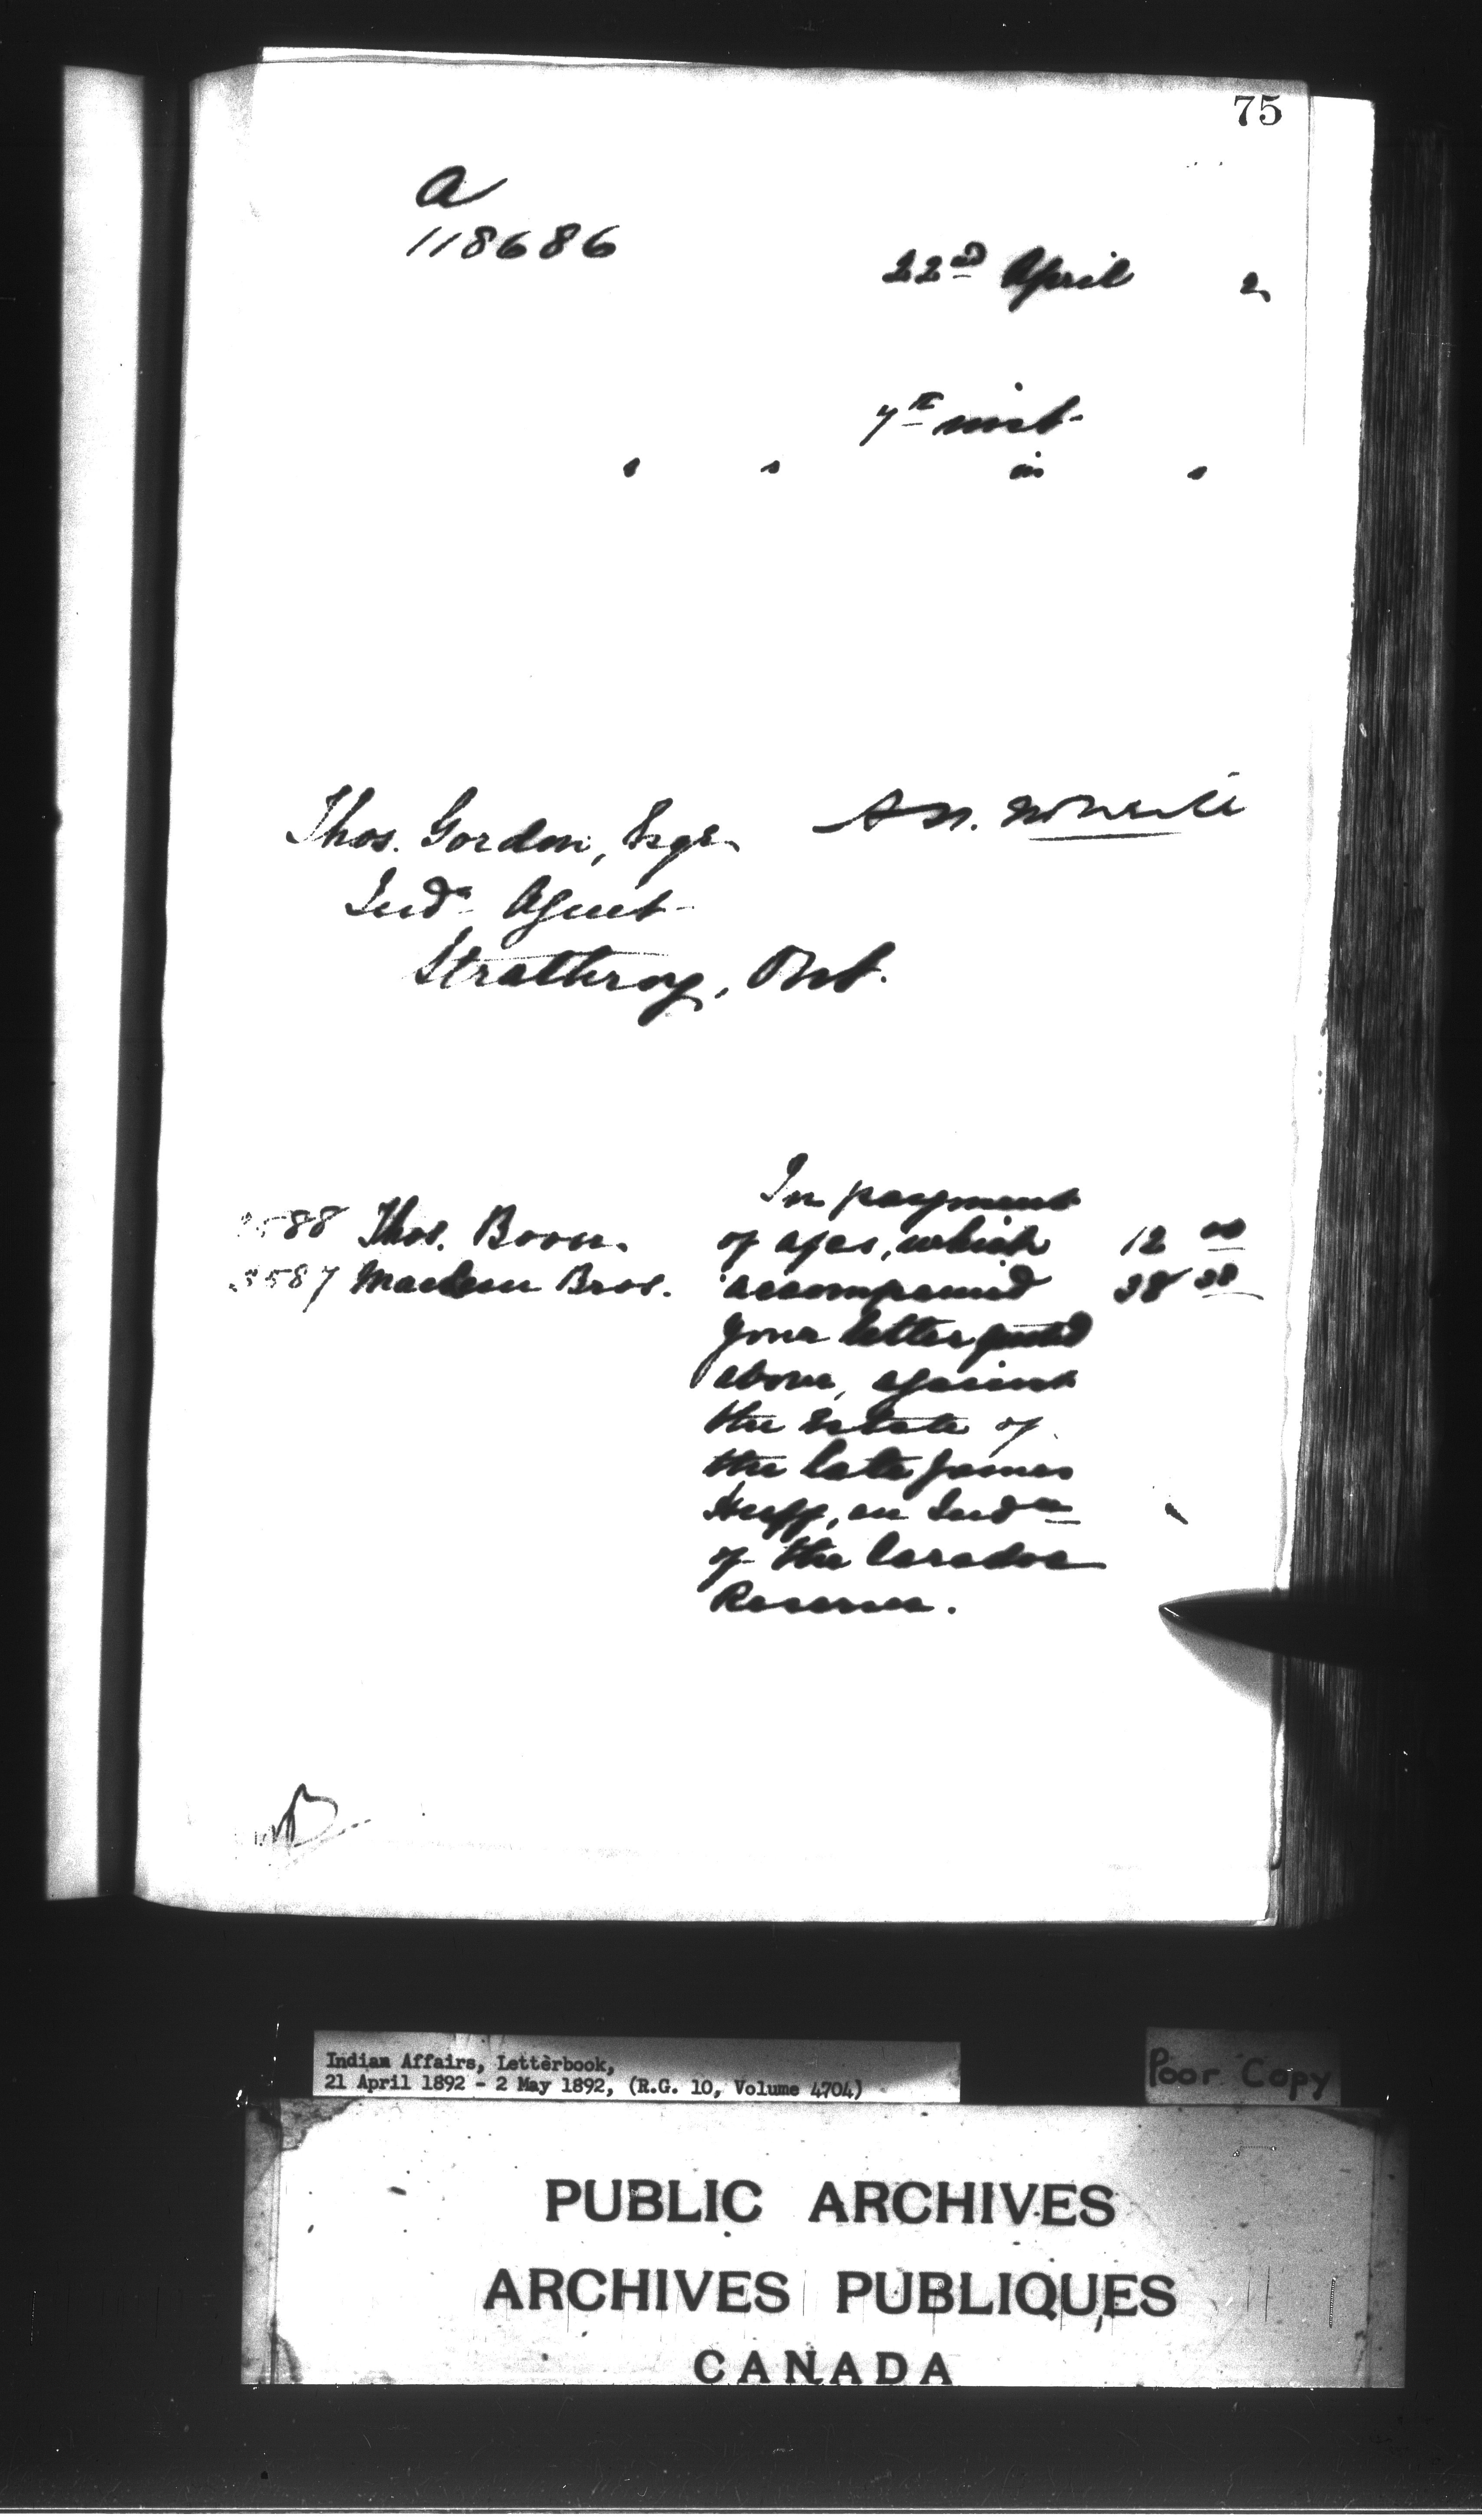 75
a
118686
22nd April 2
7th inst
s s in s
Thos. Gordon, Esqr. A.N. McNeill
Indn Agent
Strathroy, Ont.
In payment
588 Thos. Boon. of a/cs, which 12 00
3587 Bros. accompanied 38 38
your letter quoted
above, against
the Estate of
the late James
Huff, an Indn
of the Caradoc
Reserve.
Indian Affairs, Letterbook,
21 April 1892 - 2 May 1892, (R.G. 10, Volume 4704)
Poor Copy
PUBLIC ARCHIVES
ARCHIVES PUBLIQUES
CANADA